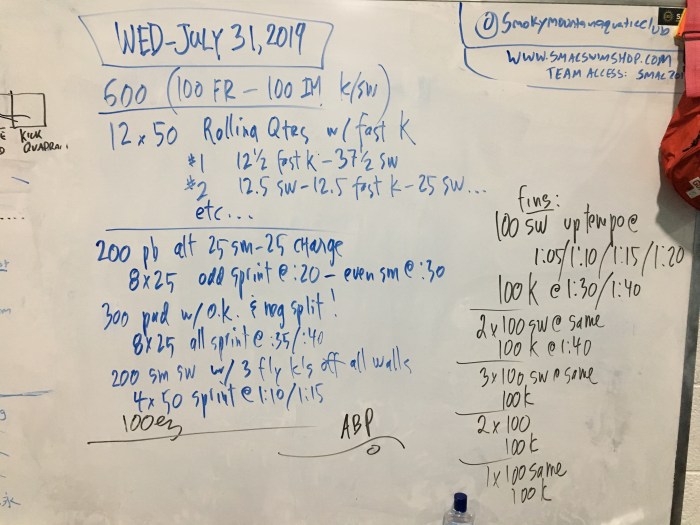 WED-JULY 31, 2019
600 (100 FR - 100 IM K/SW)
12 x 50 Rolling Qtrs w/ fast K
#1 12½ fast k - 37½ sw
#2 12.5 sw - 12.5 fast k - 25 sw...
etc...
200 pb alt 25 sm - 25 charge
8x25 odd sprint @ :20 - even sm @ :30
300 pad w/ o.k. & neg split!
8x25 all sprint @ :35/:40
200 sm sw w/ 3 fly k's off all walls
4x50 sprint @ 1:10/1:15
100 ez
ABP
Smokymountainaquaticclub
WWW.SMACSWIMSHOP.COM
TEAM ACCESS: SMAC
fins:
100 SW up tempo @
1:05/1:10/1:15/1:20
100 K @ 1:30/1:40
2x100 sw @ same
100 K @ 1:40
3x100 sw @ same
100 K
2x100
100 K
1x100 same
100 K
KICK